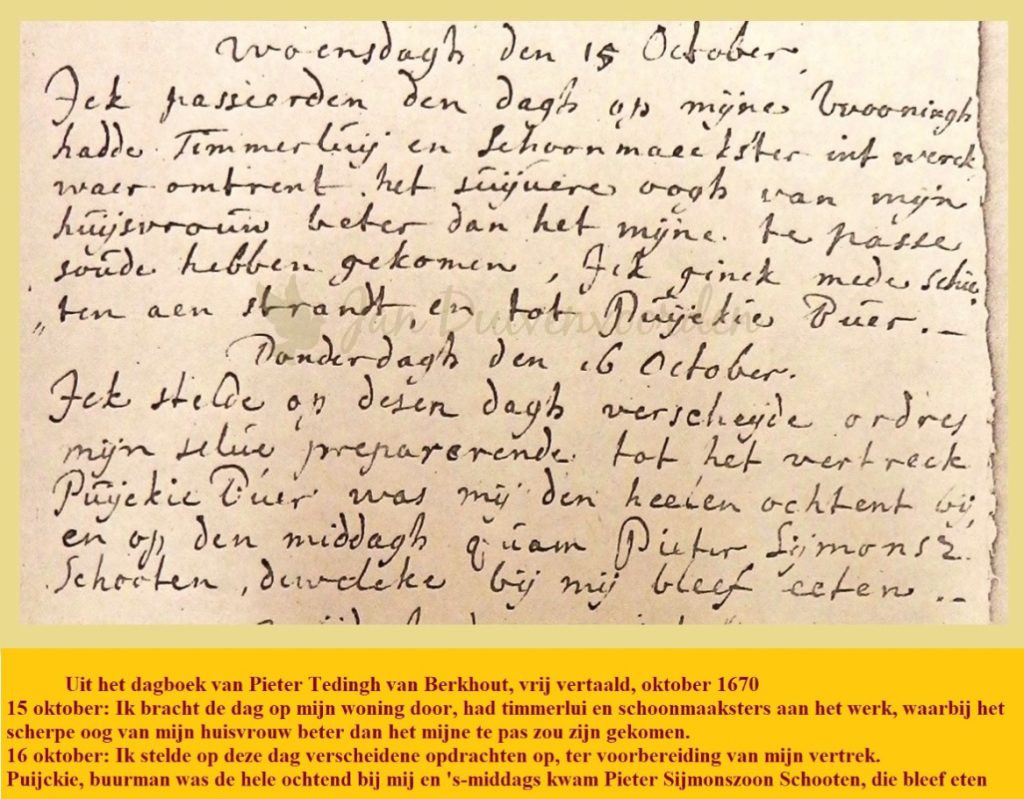 Woensdagh den 15 October.
Jck passeerden den dagh op mijne Wooningh
hadde Timmerluij en Schoonmaeckster int werck
waer omtrent het suijvere oogh van mijn
huijsvrouw beter dan het mijne te passe
soude hebben gekomen, Jck ginck mede schie
„ten aen strandt, en tot Puijckie Buer.–
Jan Duivenvoorden
Donderdagh den 16 October.
Jck stelde op desen dagh verscheyde ordres
mijn selve preparerende tot het vertreck
Puijckie Buer was mij den heelen ochtent bij
en op den middagh quam Pieter Sijmonsz.
Schooten, deweleke bij mij bleef eeten.–
Uit het dagboek van Pieter Tedingh van Berkhout, vrij vertaald, oktober 1670
15 oktober: Ik bracht de dag op mijn woning door, had timmerlui en schoonmaaksters aan het werk, waarbij het
scherpe oog van mijn huisvrouw beter dan het mijne te pas zou zijn gekomen.
16 oktober: Ik stelde op deze dag verscheidene opdrachten op, ter voorbereiding van mijn vertrek.
Puijckie, buurman was de hele ochtend bij mij en 's-middags kwam Pieter Sijmonszoon Schooten, die bleef eten